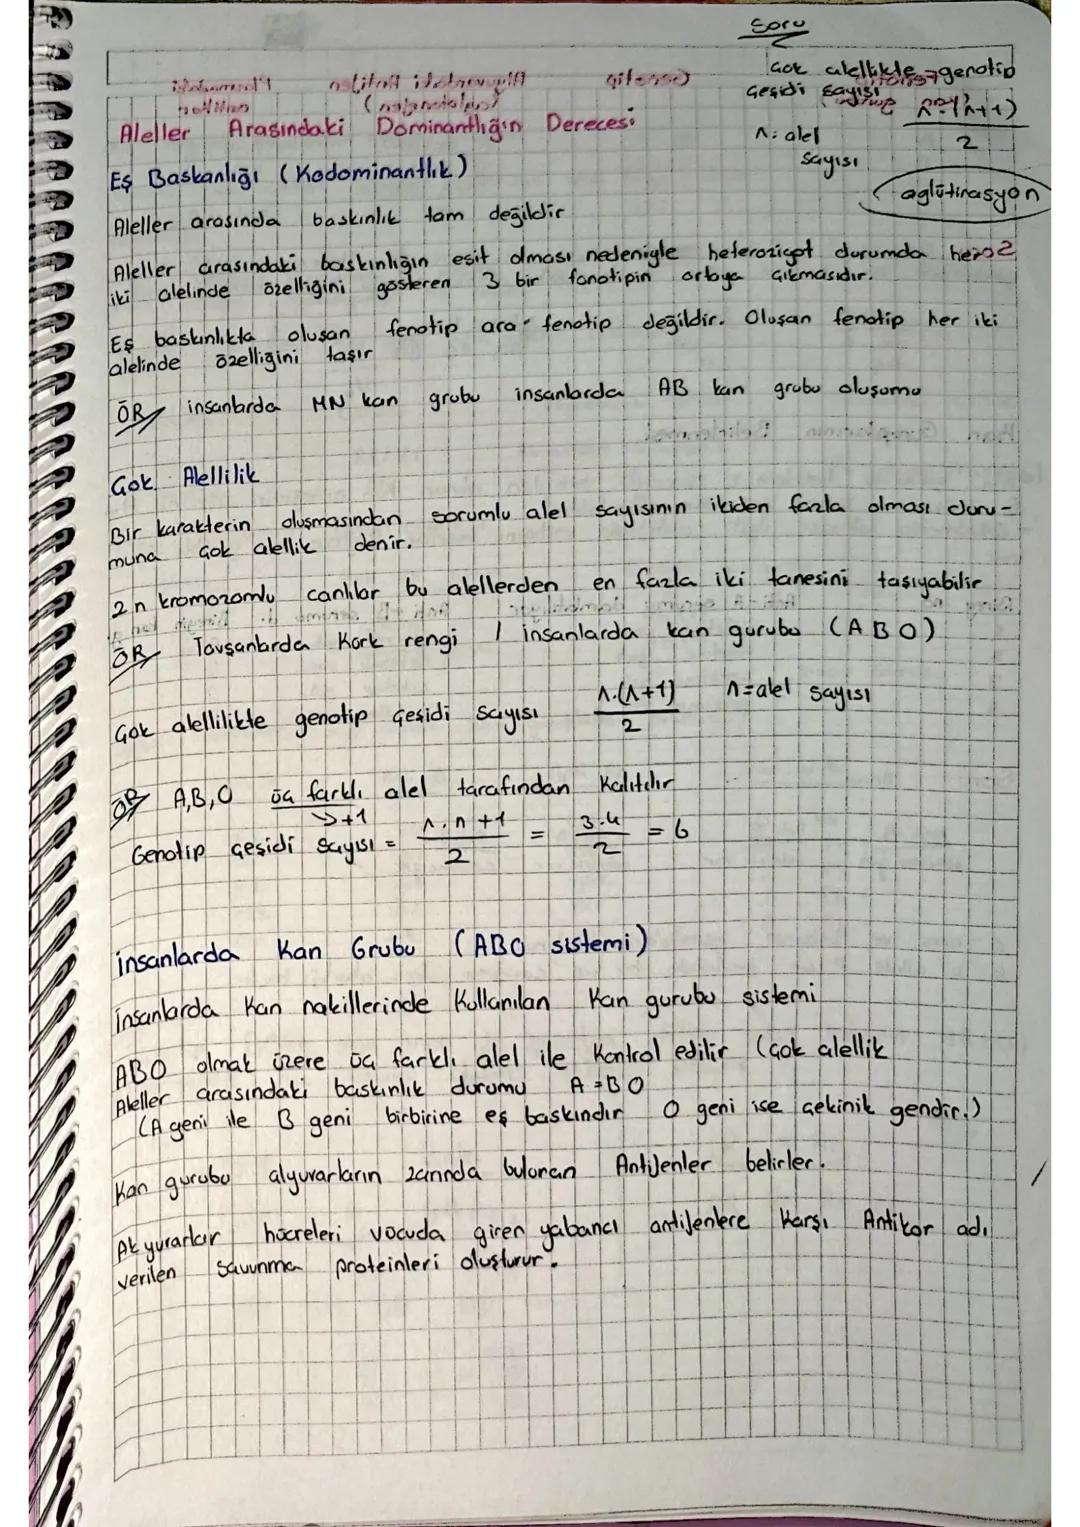 Soru
Çok alellikte genotip
çeşidi sayısı n.(n+1)
2
n: alel
sayısı
aglütinasyon
Aleller Arasındaki Dominantlığın Derecesi
Eş Baskanlığı (Kodominantlık)
Aleller arasında baskınlık tam değildir
Aleller arasındaki baskınlığın eşit olması nedeniyle heterozigot durumda her 2
iki alelinde özelliğini gösteren 3 bir fonotipin ortaya çıkmasıdır.
Eş baskınlıkta oluşan fenotip ara fenotip değildir. Oluşan fenotip her iki
alelinde özelliğini taşır
ÖR insanlarda MN kan grubu insanlarda AB kan grubu oluşumu
Çok Alellilik
Bir karakterin oluşmasından sorumlu alel sayısının ikiden fazla olması duru-
muna çok alellik denir.
2n kromozomlu canlılar bu alellerden en fazla iki tanesini taşıyabilir
ÖR Tavşanlarda Kürk rengi / insanlarda kan gurubu (ABO)
Çok alellilikte genotip çeşidi sayısı n.(n+1) n=alel sayısı
2
ÖR A,B,O üç farklı alel tarafından Kalıtılır
→+1
Genotip çeşidi sayısı = n.n+1 = 3.4 = 6
2 2
insanlarda Kan Grubu (ABO sistemi)
İnsanlarda Kan nakillerinde Kullanılan Kan gurubu sistemi
ABO olmak üzere üç farklı alel ile Kontrol edilir (çok alellik
Aleller arasındaki baskınlık durumu A=BO
(A geni ile B geni birbirine eş baskındır O geni ise çekinik gendir.)
Kan gurubu alyuvarların zarında bulunan Antijenler belirler.
Akyuvarlar hücreleri vücuda giren yabancı antijenlere Karşı Antikor adı
verilen savunma proteinleri oluşturur.